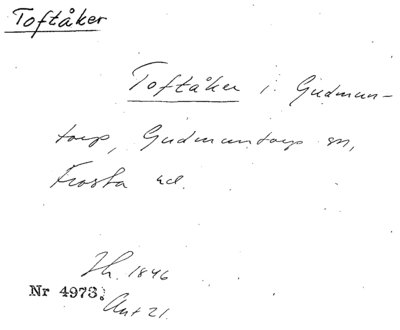 Toftåker
Toftåker i Gudmun-
torp, Gudmuntorp sn,
Frosta hd.
Jh. 1846
Nr 4973.
Ant 21.